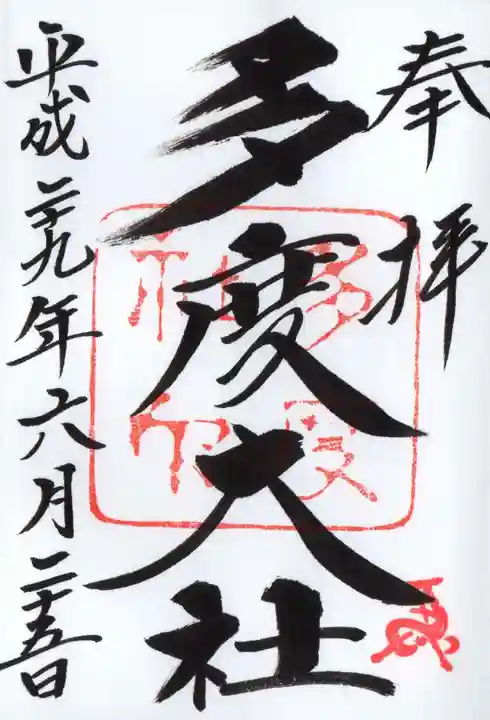 奉拝
多度大社
平成二十九年六月二十五日